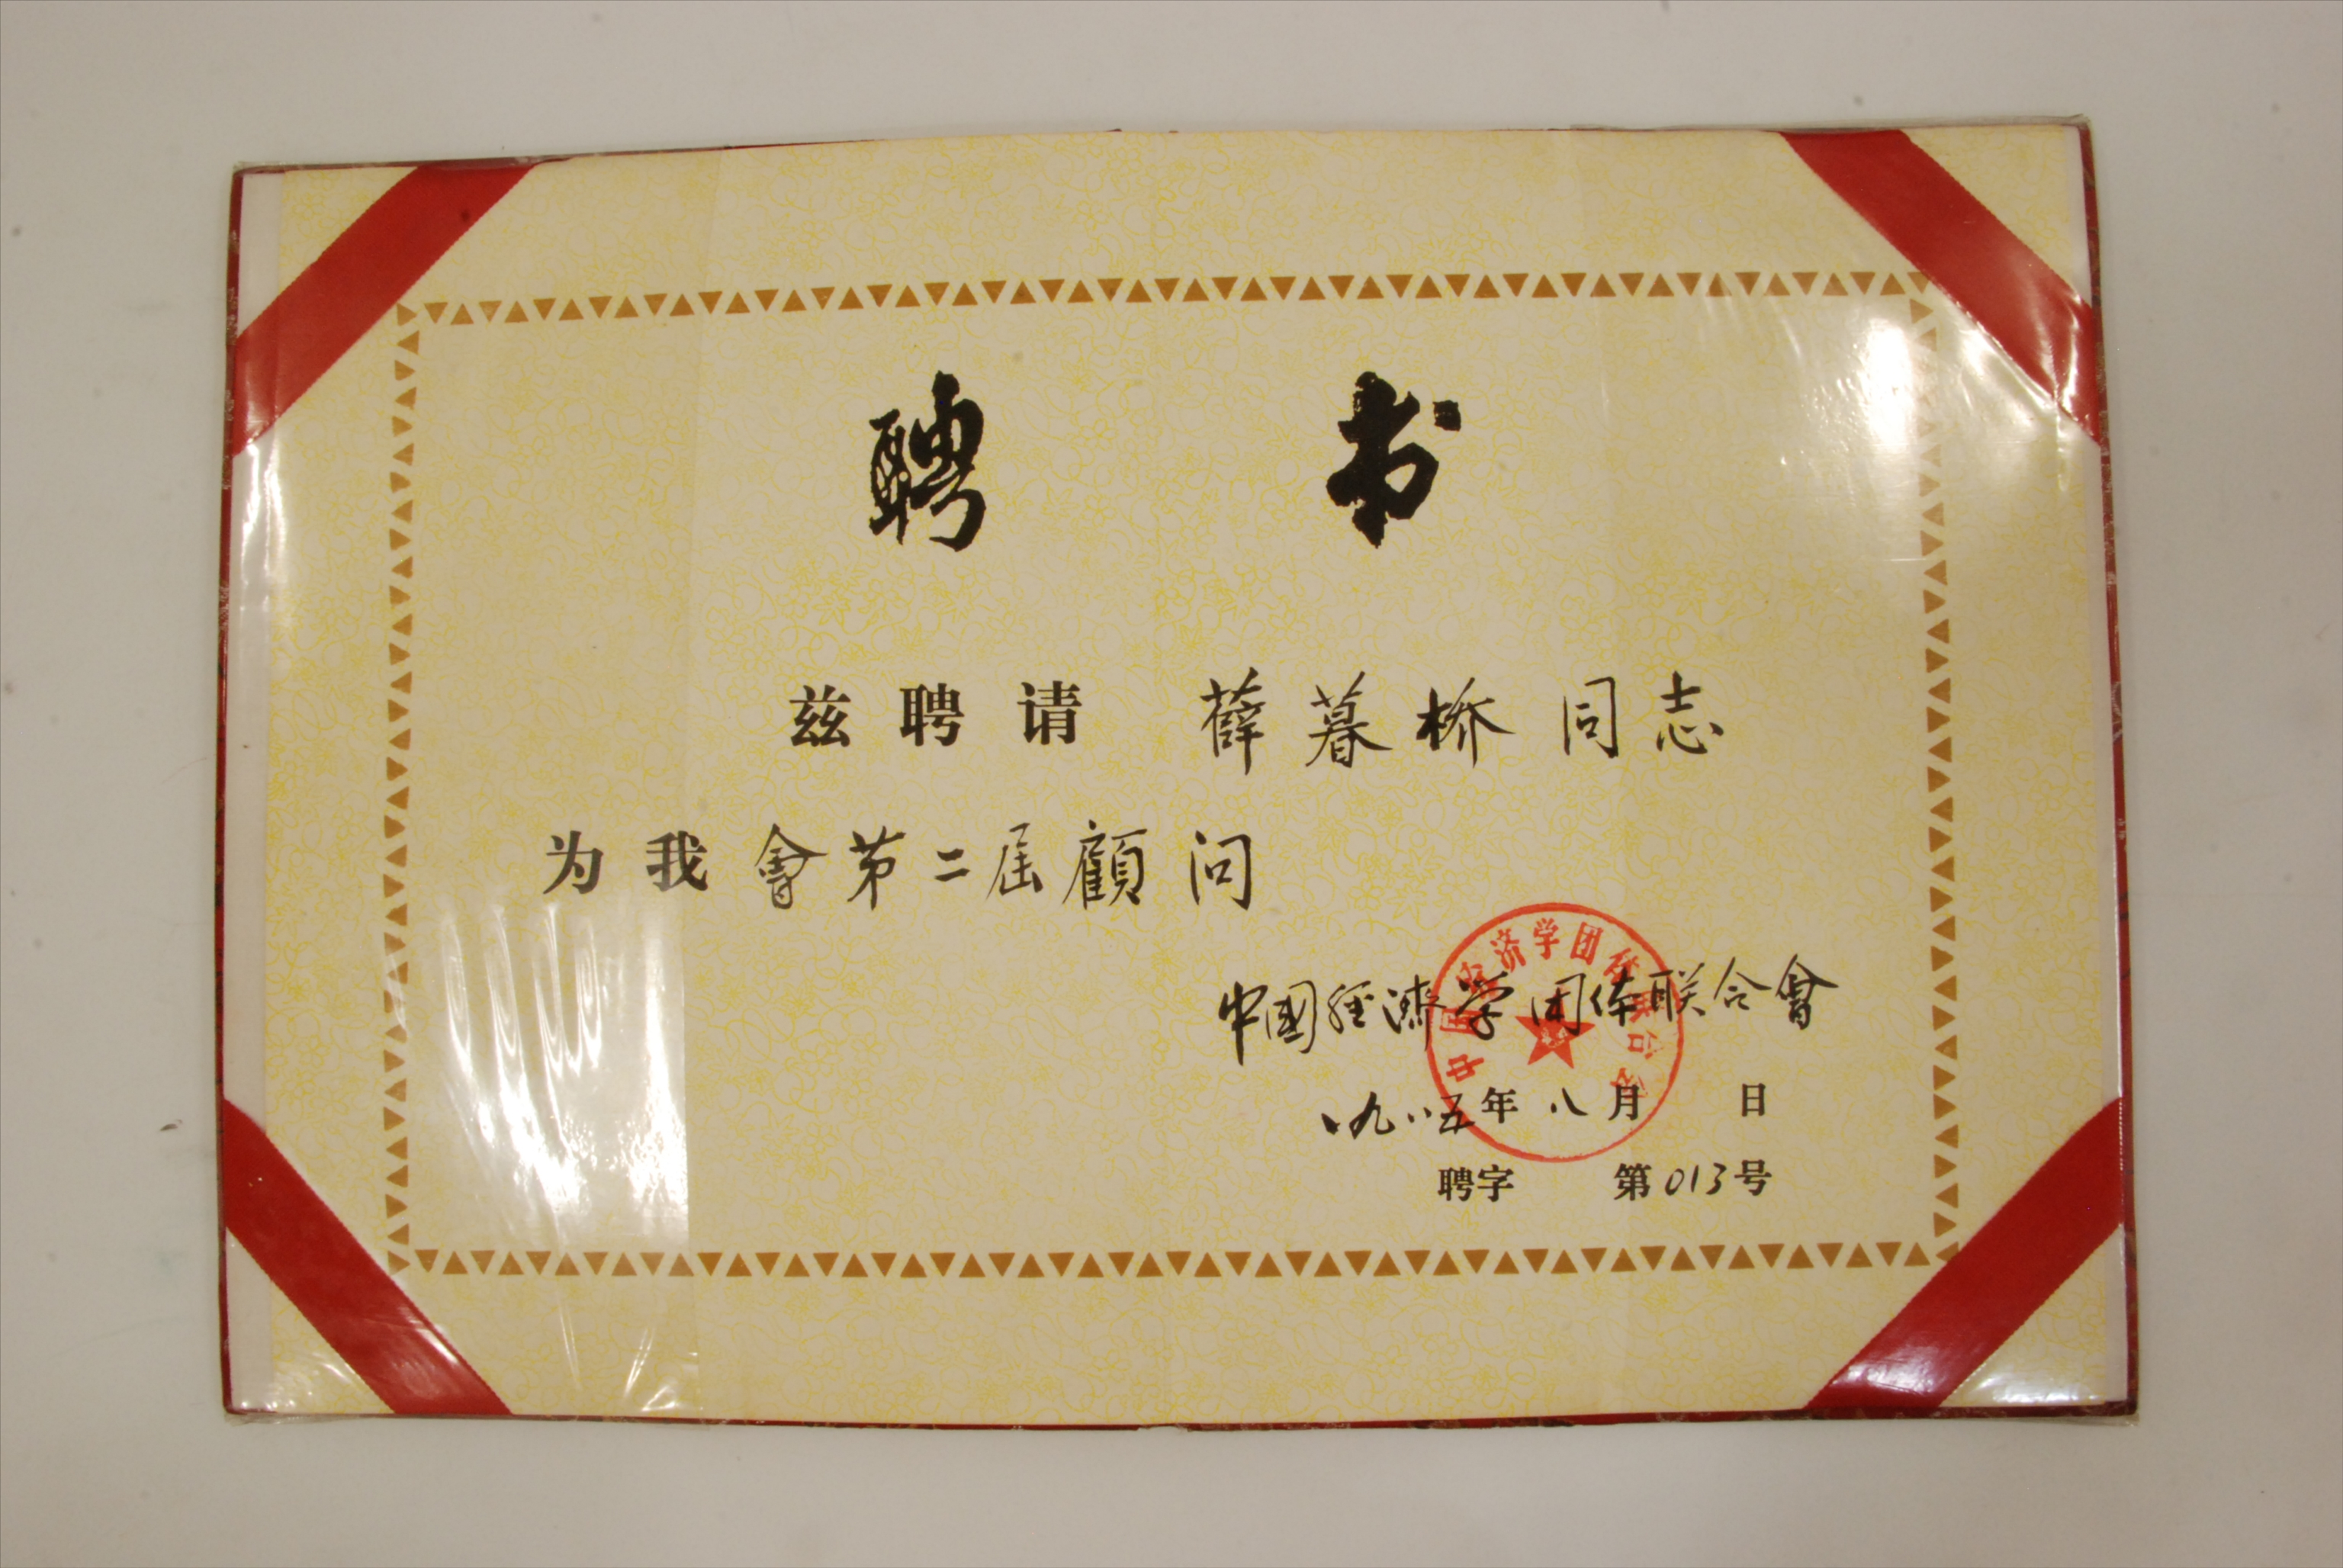 聘书
兹聘请 薛暮桥 同志
为我會第二届顧问
中國經濟学团体联合會
中国经济学团体联合会
一九八五年八月 日
聘字 第013号